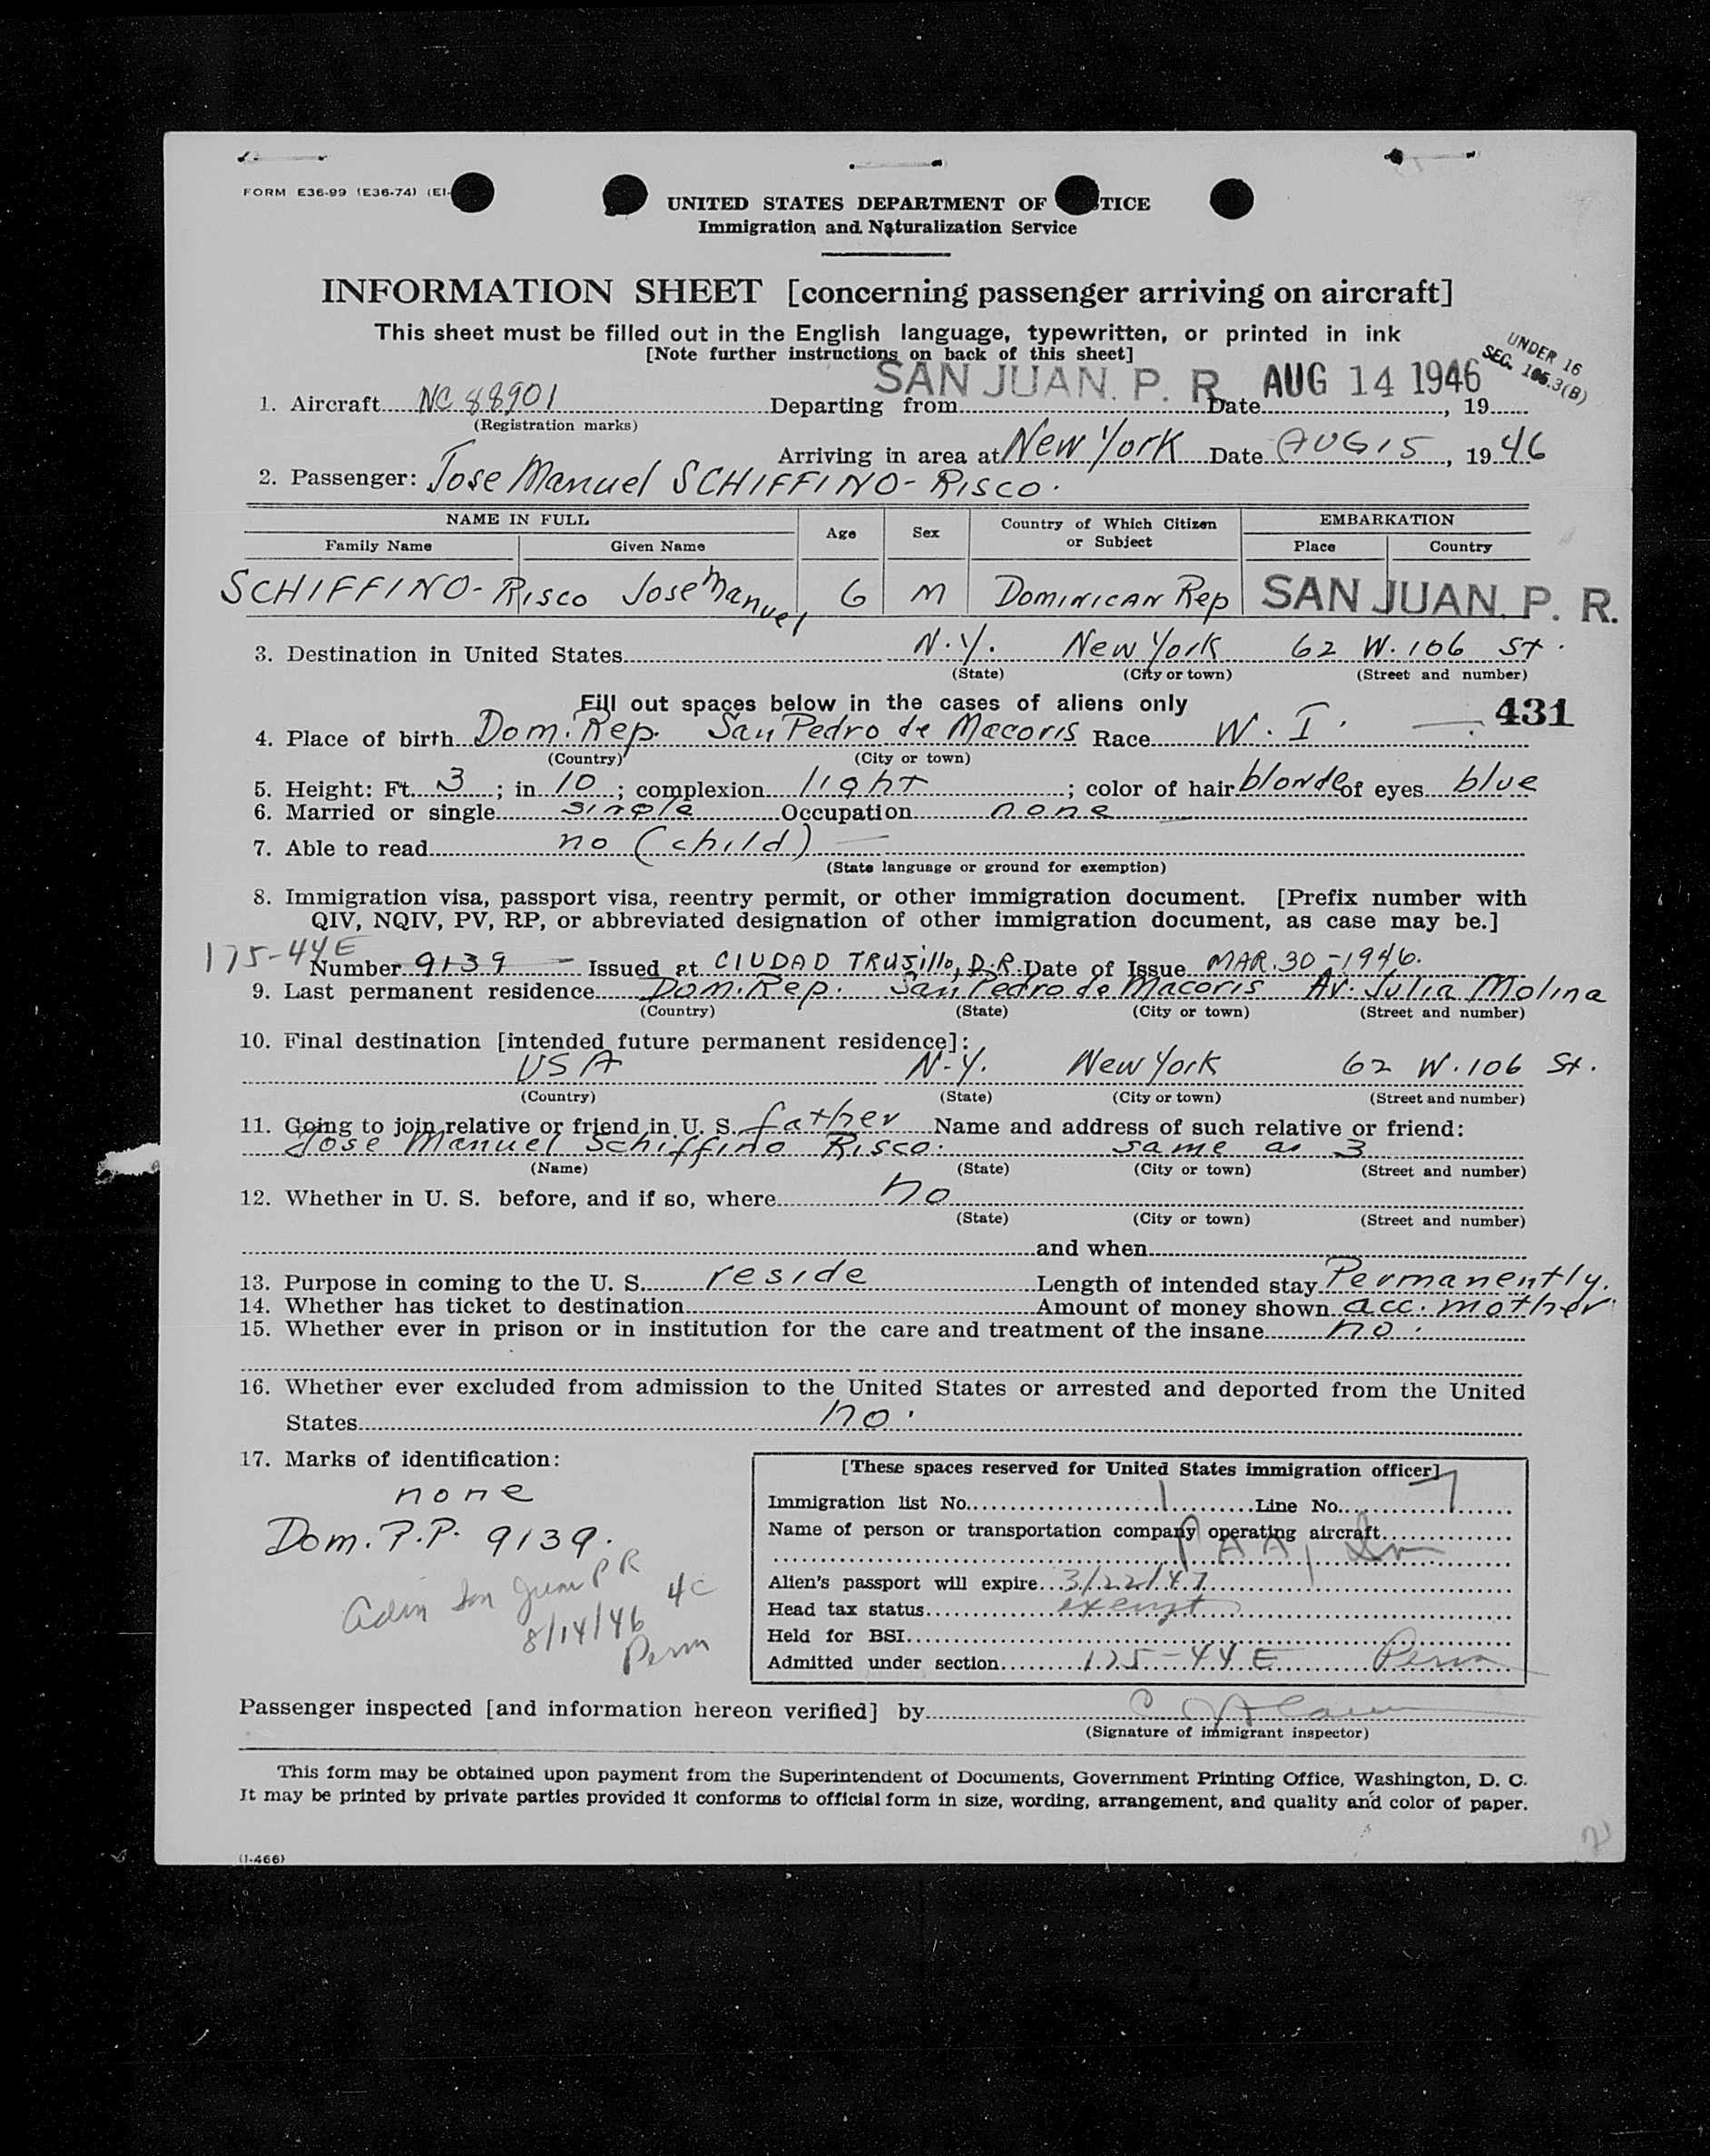 FORM E36-99 (E36-74) (EI-
UNITED STATES DEPARTMENT OF TICE
Immigration and Naturalization Service
INFORMATION SHEET [concerning passenger arriving on aircraft]
This sheet must be filled out in the English language, typewritten, or printed in ink
[Note further instructions on back of this sheet]
UNDER 16
SEC. 105.3(B)
1. Aircraft NC 88901 Departing from SAN JUAN. P. R. Date AUG 14 1946, 19
(Registration marks)
Arriving in area at New York Date AUG 15, 19 46
2. Passenger: Jose Manuel SCHIFFINO-RISCO.
NAME IN FULL Age Sex Country of Which Citizen or Subject EMBARKATION
Family Name Given Name Place Country
SCHIFFINO-Risco Jose Manuel 6 M DOMINICAN Rep SAN JUAN. P. R.
3. Destination in United States N.Y. New York 62 W. 106 St.
(State) (City or town) (Street and number)
Fill out spaces below in the cases of aliens only
431
4. Place of birth Dom. Rep. San Pedro de Macoris Race W. I.
(Country) (City or town)
5. Height: Ft. 3; in 10; complexion light; color of hair blonde of eyes blue
6. Married or single single Occupation none
7. Able to read no (child)
(State language or ground for exemption)
8. Immigration visa, passport visa, reentry permit, or other immigration document. [Prefix number with
QIV, NQIV, PV, RP, or abbreviated designation of other immigration document, as case may be.]
175-44E
Number 9139 Issued at CIUDAD TRUJillo, D.R. Date of Issue MAR. 30-1946.
9. Last permanent residence Dom. Rep. San Pedro de Macoris Av. Julia Molina
(Country) (State) (City or town) (Street and number)
10. Final destination [intended future permanent residence]:
USA N.Y. New York 62 W. 106 St.
(Country) (State) (City or town) (Street and number)
11. Going to join relative or friend in U. S. father Name and address of such relative or friend:
Jose Manuel Schiffino Risco. same as 3
(Name) (State) (City or town) (Street and number)
12. Whether in U. S. before, and if so, where no
(State) (City or town) (Street and number)
and when
13. Purpose in coming to the U. S. reside Length of intended stay Permanently.
14. Whether has ticket to destination Amount of money shown acc. mother
15. Whether ever in prison or in institution for the care and treatment of the insane no.
16. Whether ever excluded from admission to the United States or arrested and deported from the United
States no.
17. Marks of identification:
none
Dom. P.P. 9139.
Adm San Juan PR
8/14/46 4c
Perm
[These spaces reserved for United States immigration officer]
Immigration list No. 1 Line No. 7
Name of person or transportation company operating aircraft
PAA,
Alien's passport will expire 3/22/47
Head tax status exempt
Held for BSI
Admitted under section 175-44E Perm
Passenger inspected [and information hereon verified] by
(Signature of immigrant inspector)
This form may be obtained upon payment from the Superintendent of Documents, Government Printing Office, Washington, D. C.
It may be printed by private parties provided it conforms to official form in size, wording, arrangement, and quality and color of paper.
(I-466)